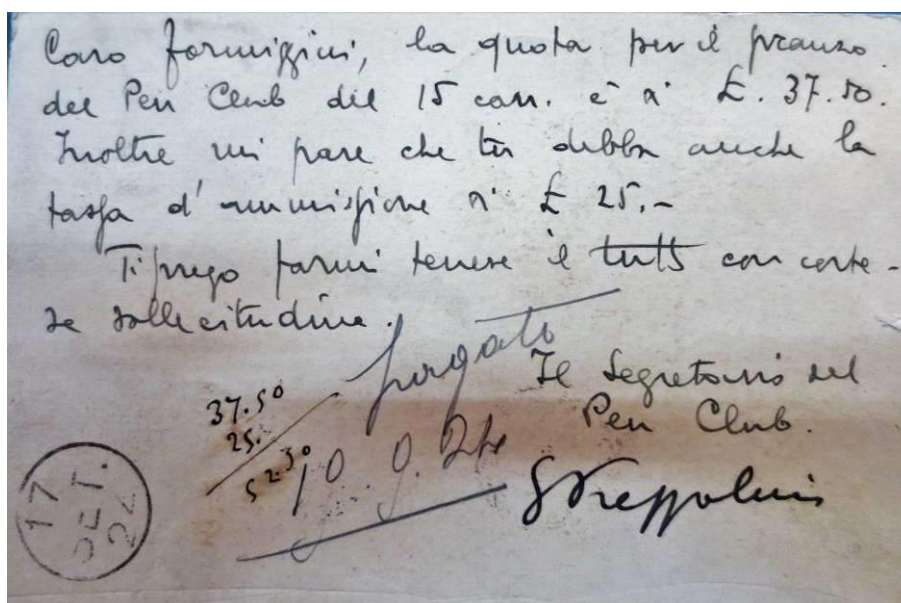 Caro Formiggini, la quota per il pranzo
del Pen Club del 15 corr. è di £. 37.50.
Inoltre mi pare che tu debba anche la
tassa d'ammissione di £ 25.-
Ti prego farmi tenere il tutto con corte-
se sollecitudine.
pagato
Il Segretario del
Pen Club.
37.50
25.
52.50
GPrezzolini
17
SET.